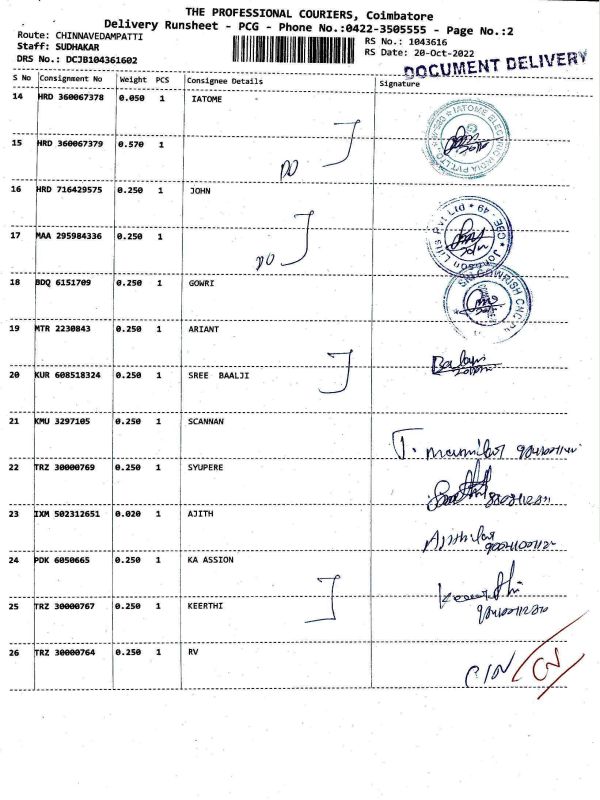 THE PROFESSIONAL COURIERS, Coimbatore
Delivery Runsheet - PCG - Phone No.:0422-3505555 - Page No.:2
Route: CHINNAVEDAMPATTI
RS No.: 1043616
Staff: SUDHAKAR
RS Date: 20-Oct-2022
DRS No.: DCJB104361602
DOCUMENT DELIVERY
S No Consignment No Weight PCS Consignee Details Signature
14 HRD 360067378 0.050 1 IATOME
15 HRD 360067379 0.570 1
DO
16 HRD 716429575 0.250 1 JOHN
17 MAA 295984336 0.250 1
DO
18 BDQ 6151709 0.250 1 GOWRI
19 MTR 2230843 0.250 1 ARIANT
20 KUR 608518324 0.250 1 SREE BAALJI
21 KMU 3297105 0.250 1 SCANNAN
22 TRZ 30000769 0.250 1 SYUPERE
23 IXM 502312651 0.020 1 AJITH
24 PDK 6050665 0.250 1 KA ASSION
25 TRZ 30000767 0.250 1 KEERTHI
Keerthi
26 TRZ 30000764 0.250 1 RV